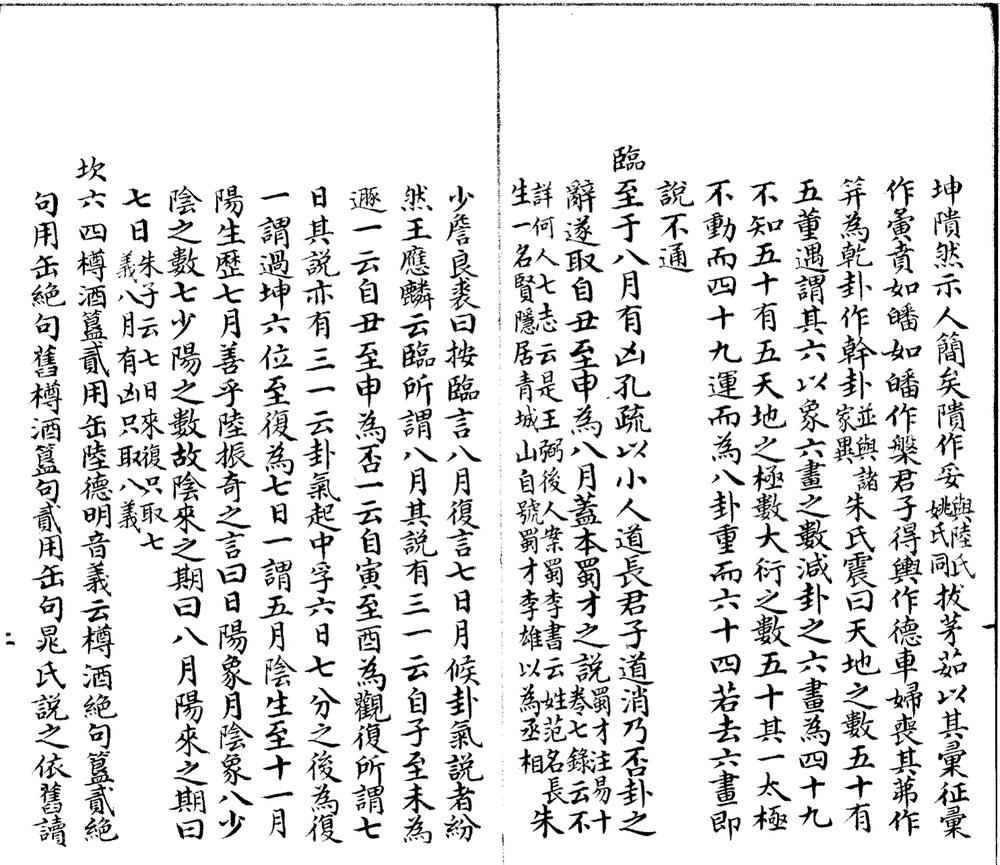 坤隤然示人簡矣隤作妥與陸氏姚氏同拔茅茹以其彙征彙
作夤賁如皤如皤作槃君子得輿作德車婦喪其茀作
笄為乾卦作幹卦並與諸家異朱氏震曰天地之數五十有
五董遇謂其六以象六畫之數減卦之六畫為四十九
不知五十有五天地之極數大衍之數五十其一太極
不動而四十九運而為八卦重而六十四若去六畫即
說不通
臨至于八月有凶孔疏以小人道長君子道消乃否卦之
辭遂取自丑至申為八月蓋本蜀才之說蜀才注易十卷七錄云不
詳何人七志云是王弼後人案蜀李書云姓范名長
生一名賢隱居青城山自號蜀才李雄以為丞相朱
少詹良裘曰按臨言八月復言七日月候卦氣說者紛
然王應麟云臨所謂八月其說有三一云自子至未為
遯一云自丑至申為否一云自寅至酉為觀復所謂七
日其說亦有三一云卦氣起中孚六日七分之後為復
一謂過坤六位至復為七日一謂五月陰生至十一月
陽生歷七月善乎陸振奇之言曰日陽象月陰象八少
陰之數七少陽之數故陰來之期曰八月陽來之期曰
七日朱子云七日來復只取七義八月有凶只取八義
坎六四樽酒簋貳用缶陸德明音義云樽酒絕句簋貳絕
句用缶絕句舊樽酒簋句貳用缶句晁氏說之依舊讀
二